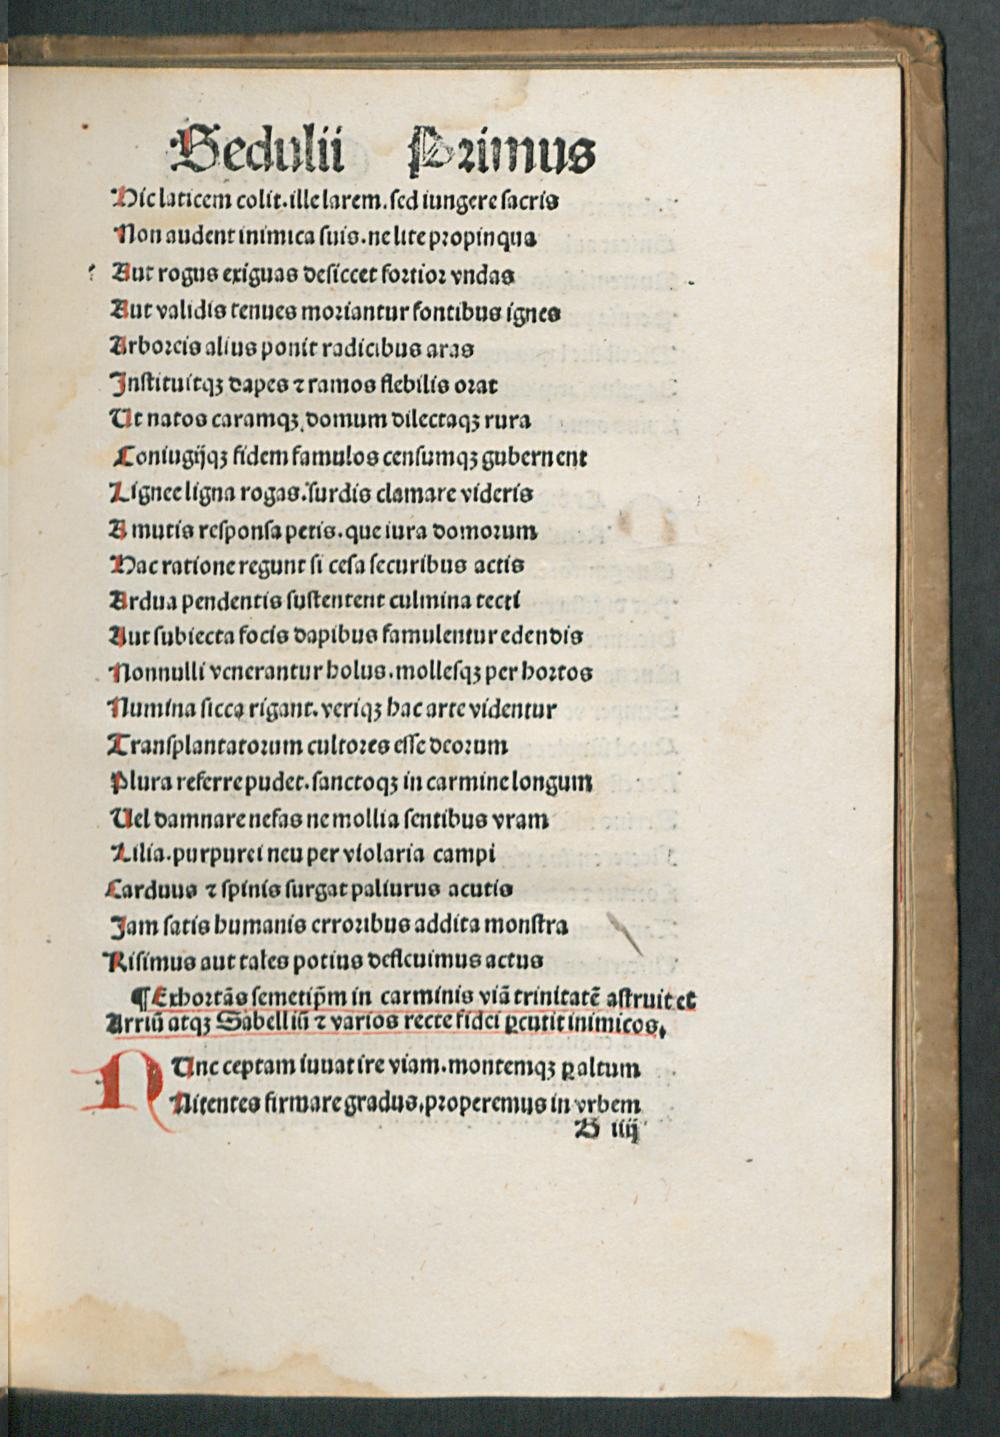 Sedulii Primus
Hic laticem colit. ille larem. sed iungere sacris
Non audent inimica suis. ne lite propinqua
Aut rogus exiguas desiccet fortior vndas
Aut validis tenues moriantur fontibus ignes
Arboreis alius ponit radicibus aras
Instituitqꝫ dapes ⁊ ramos flebilis orat
Ut natos caramqꝫ domum dilectaqꝫ rura
Coniugijqꝫ fidem famulos censumqꝫ gubernent
Lignee ligna rogas. surdis clamare videris
A mutis responsa petis. que iura domorum
Hac ratione regunt si cesa securibus actis
Ardua pendentis sustentent culmina tecti
Aut subiecta focis dapibus famulentur edendis
Nonnulli venerantur holus. mollesqꝫ per hortos
Numina sicca rigant. veriqꝫ hac arte videntur
Transplantatorum cultores esse deorum
Plura referre pudet. sanctoqꝫ in carmine longum
Uel damnare nefas ne mollia sentibus vram
Lilia. purpurei neu per violaria campi
Carduus ⁊ spinis surgat paliurus acutis
Jam satis humanis erroribus addita monstra
Risimus aut tales potius defleuimus actus
¶Exhortãs semetip̃m in carminis viã trinitatẽ astruit et
Arriũ atqꝫ Sabelliũ ⁊ varios recte fidei ꝑcutit inimicos,
NUnc ceptam iuuat ire viam. montemqꝫ ꝑ altum
Nitentes firmare gradus, properemus in vrbem
B iiij